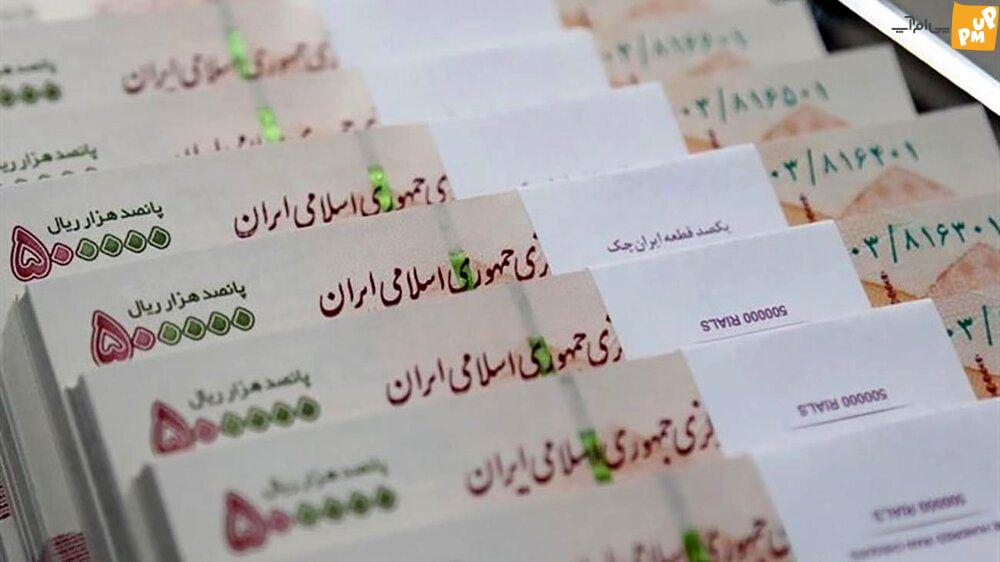 پی‌ام‌آپ
UP
PM
۰۳/۸۱۶۶۰۱
جمهوری اسلامی ایران
هزار ریال
۰۳/۸۱۶۵۰۱
پانصد هزار ریال
۰۳/۸۱۶۴۰۱
جمهوری اسلامی ایران
پانصد هزار ریال
۵۰۰۰۰۰
یکصد قطعه ایران چک
۰۳/۸۱۶۳۰۱
جمهوری اسلامی ایران
پانصد هزار ریال
۵۰۰۰۰۰
500000 RIALS
۰۳/
جمهوری اسلامی ایران
پانصد هزار ریال
۵۰۰۰۰۰
500000 RIALS
جمهوری اسلامی ایران
پانصد هزار ریال
۵۰۰۰۰۰
500000 RIALS
جمهوری اسلامی ایران